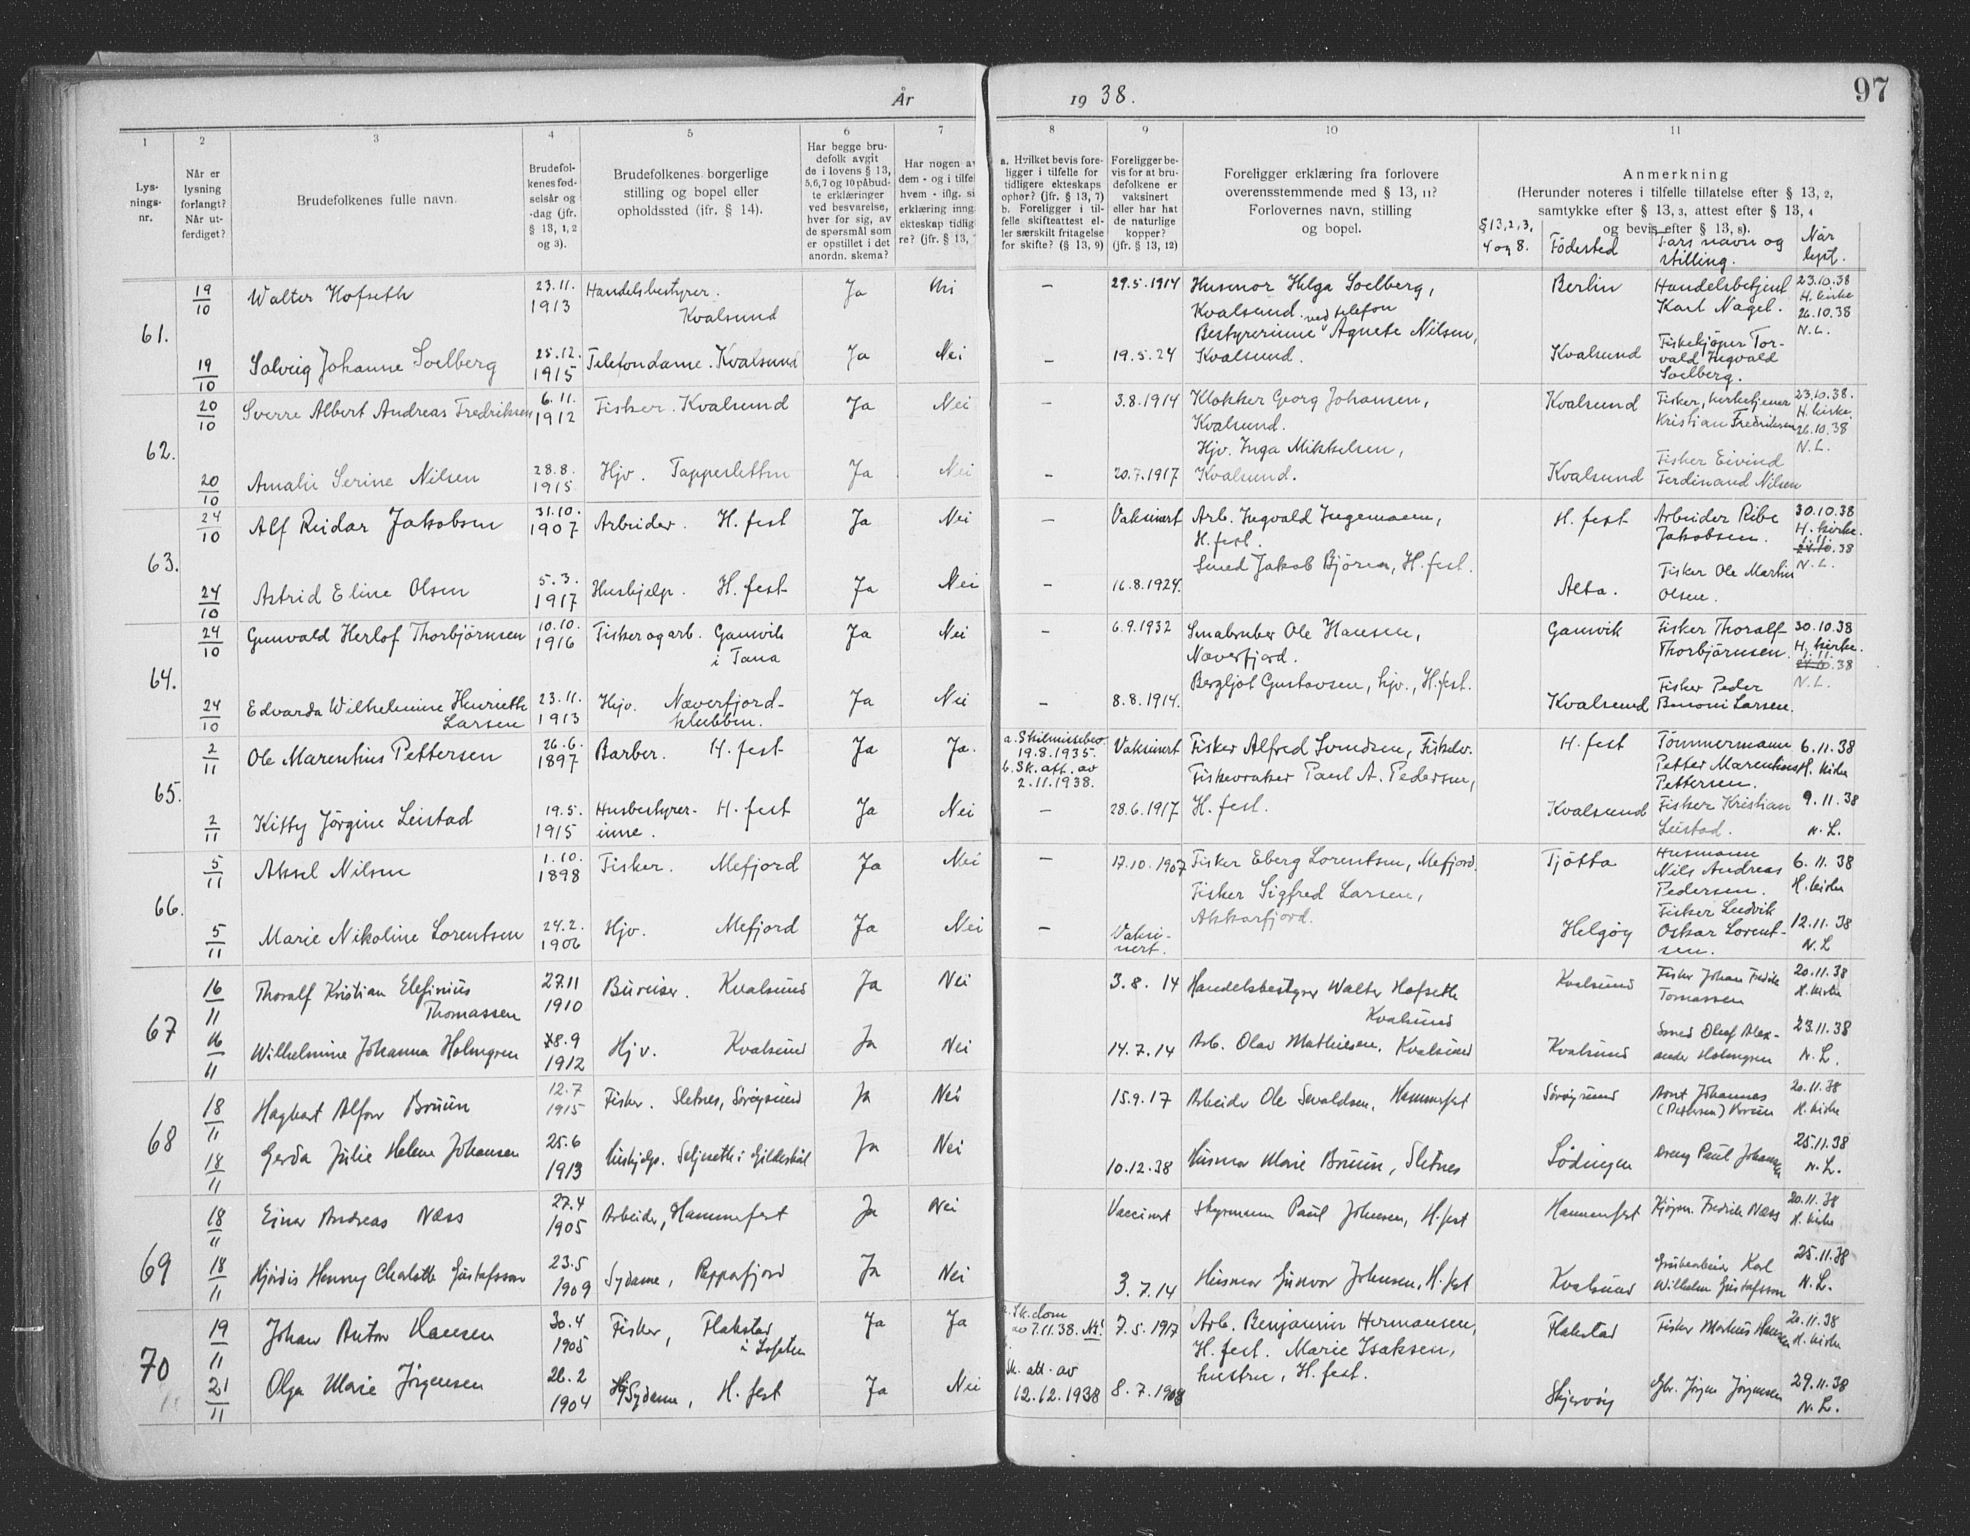 97
År 1938.
1 2 3 4 5 6 7 8 9 10 11
Lys-
nings-
nr.
Når er
lysning
forlangt?
Når ut-
ferdiget?
Brudefolkenes fulle navn.
Brudefol-
kenes fød-
selsår og
-dag (jfr.
§ 13, 1, 2
og 3).
Brudefolkenes borgerlige
stilling og bopel eller
opholdssted (jfr. § 14).
Har begge bru-
defolk avgit
de i lovens § 13,
5,6,7 og 10 påbud-
te erklæringer
ved besvarelse,
hver for sig, av
de spørsmål som
er opstillet i det
anordn. skema?
Har nogen av
dem - og i tilfel
hvem - iflg. si
erklæring inng.
ekteskap tidlig
re? (jfr. § 13,
a. Hvilket bevis fore-
ligger i tilfelle for
tidligere ekteskaps
ophør? (jfr. § 13, 7)
b. Foreligger i til-
felle skifteattest el-
ler særskilt fritagelse
for skifte? (§ 13, 9)
Foreligger be-
vis for at bru-
defolkene er
vaksinert
eller har hat
de naturlige
kopper?
(jfr. § 13, 12)
Foreligger erklæring fra forlovere
overensstemmende med § 13, 11?
Forlovernes navn, stilling
og bopel.
Anmerkning
(Herunder noteres i tilfelle tillatelse efter § 13, 2,
samtykke efter § 13, 3, attest efter § 13, 4
og bevis efter § 13, 8).
§ 13, 2, 3,
4 og 8.
Födested
Fars navn og
stilling.
Når
lyst.
61.
19/10 Walter Hofseth 23.11. 1913 Handelsbestyrer. Kvalsund Ja Nei — 29.5.1914 Husmor Helga Soelberg, Kvalsund. ved telefon Berlin Handelsbetjent Karl Nagel. 23.10.38 H. kirke 26.10.38 N.L.
19/10 Solveig Johanne Soelberg 25.12. 1915 Telefondame. Kvalsund Ja Nei — 19.5.24 Bestyrerinne Agnete Nilsen, Kvalsund. Kvalsund Fiskekjøper Tor-
vald Ingvald
Soelberg.
62.
20/10 Sverre Albert Andreas Fredriksen 6.11. 1912 Fisker. Kvalsund Ja Nei — 3.8.1914 Klokker Georg Johansen, Kvalsund. Kvalsund Fisker, kirketjener Kristian Fredriksen 23.10.38. H. kirke 26.10.38 N.L.
20/10 Amalie Serine Nilsen 28.8. 1915 Hjv. Tappersletten Ja Nei — 20.7.1917 Hjv. Inga Mikkelsen, Kvalsund. Kvalsund Fisker Eivind Ferdinand Nilsen
63.
24/10 Alf Reidar Jakobsen 31.10. 1907 Arbeider. H. fest Ja Nei — Vaksinert Arb. Ingvald Ingemann, H. fest. H. fest Arbeider Ribe Jakobsen. 30.10.38 H. kirke. 24.10.38 N.L.
24/10 Astrid Eline Olsen 5.3. 1917 Hushjelp. H. fest Ja Nei — 16.8.1924. Smed Jakob Björen, H. fest. Alta. Fisker Ole Martin Olsen.
64.
24/10 Gunvald Herlof Thorbjörnsen 10.10. 1916 Fisker og arb. Gamvik i Tana Ja Nei — 6.9.1932 Småbruker Ole Hansen, Næverfjord. Gamvik Fisker Thoralf Thorbjörnsen. 30.10.38 H. kirke. 24.10.38 N.L.
24/10 Edvarda Wilhelmine Henriette Larsen 23.11. 1913 Hjv. Næverfjord-
klubben. Ja Nei — 8.8.1914. Bergljot Gustavsen, hjv., H. fest. Kvalsund Fisker Peder Benoni Larsen.
65.
2/11 Ole Marentius Pettersen 26.6. 1897 Barber. H. fest Ja Ja. a. Skilmissebev. 19.8.1935. b. Sk. att. av 2.11.1938. Vaksinert Fisker Alfred Svendsen, H. fest Tömmermann Petter Marentius Pettersen. 6.11.38 H. kirke
2/11 Kitty Jörgine Leistad 19.5. 1915 Husbestyrer-
inne. H. fest Ja Nei — 28.6.1917 Fiskevraker Paul A. Pedersen, H. fest. Kvalsund Fisker Kristian Leistad. 9.11.38 N.L.
66.
5/11 Aksel Nilsen 1.10. 1898 Fisker. Mefjord Ja Nei — 17.10.1907 Fisker Eberg Lorentsen, Mefjord. Tjötta Husmann Nils Andreas Pedersen. 6.11.38 H. kirke
5/11 Marie Nikoline Lorentsen 24.2. 1906 Hjv. Mefjord Ja Nei — Vaksi-
nert. Fisker Sigfred Larsen, Akkarfjord. Helgöy Fisker Ludvik Oskar Lorent-
sen. 12.11.38 N.L
67
16/11 Thoralf Kristian Elefinius Thomassen 27.11 1910 Bureiser. Kvalsund Ja Nei 3.8.14 Handelsbestyrer Walter Hofseth Kvalsund Kvalsund Fisker Johan Fredrik Tomassen 20.11.38 H. kirke
16/11 Wilhelmine Johanna Holmgren 28.9 1912 Hjv. Kvalsund Ja Nei 14.7.14 Arb. Olav Mathiesen, Kvalsund Kvalsund Smed Oluf Alex-
ander Holmgren 23.11.38 N.L.
68
18/11 Hagbart Alfon Bruun 12.7 1915 Fisker. Sletnes, Sörøysund Ja Nei 15.9.17 Arbeider Ole Sevaldsen, Hammerfest Sörøysund Arnt Johannes (Pettersen) Bruun 20.11.38 H. kirke
18/11 Gerda Julie Helene Johansen 25.6 1913 Hushjelp. i Gildeskål Ja Nei 10.12.38 Husmor Marie Bruun, Sletnes Lödingen Dreng Paul Johansen 25.11.38 N.L.
69
18/11 Einar Andreas Næss 27.4 1905 Arbeider, Hammerfest Ja Nei Vaccinert Styrmann Paul Johnsen, H. fest Hammerfest Fredrik Næss 20.11.38 H. kirke
18/11 Hjördis Henny Charlotte Gustafsson 23.5 1909 Sydame, Reppafjord Ja Nei 3.7.14 Husmor Gunvor Johnsen, H. fest Kvalsund Grubearbeider Karl Wilhelm Gustafsson 25.11.38 N.L.
70
19/11 Johan Anton Hansen 30.4 1905 Fisker, Flakstad i Lofoten Ja Ja Sk. dom av 7.11.38. 7.5.1917 Arb. Benjamin Hermansen, H. fest. Flakstad Fisker Markus Hansen 20.11.38 H. kirke
21/11 Olga Marie Jörgensen 26.2 1904 Sydame, H. fest Ja Nei Sk. att. av 12.12.1938 8.7.1908 Marie Isaksen, hustru, H. fest. Skjervöy Gbr. Jörgen Jörgensen 29.11.38 N.L.